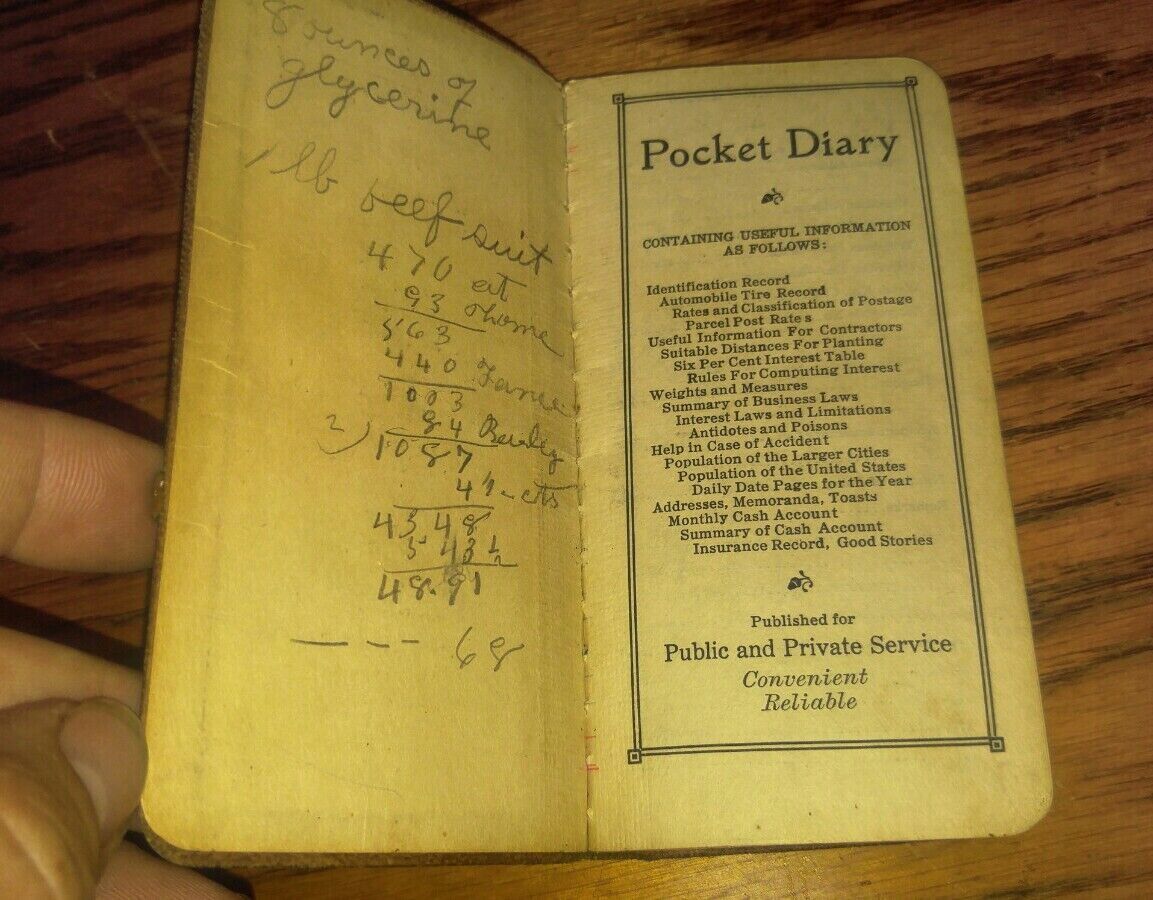 8 ounces of
glycerine
1 lb beef suit
470 at
93 home
563
440
1003
84
2) 1087
4½ - cts
4348
543½
48.91
- - - 68
Pocket Diary
CONTAINING USEFUL INFORMATION
AS FOLLOWS:
Identification Record
Automobile Tire Record
Rates and Classification of Postage
Parcel Post Rates
Useful Information For Contractors
Suitable Distances For Planting
Six Per Cent Interest Table
Rules For Computing Interest
Weights and Measures
Summary of Business Laws
Interest Laws and Limitations
Antidotes and Poisons
Help in Case of Accident
Population of the Larger Cities
Population of the United States
Daily Date Pages for the Year
Addresses, Memoranda, Toasts
Monthly Cash Account
Summary of Cash Account
Insurance Record, Good Stories
Published for
Public and Private Service
Convenient
Reliable